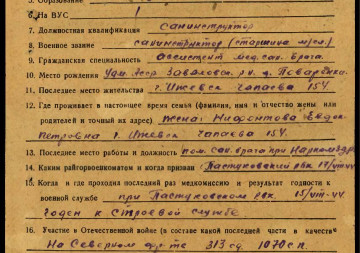 5. Образование
6. На ВУС
7. Должностная квалификация санинструктор
8. Военное звание санинструктор (старшина м/сл.)
9. Гражданская специальность ассистент мед. сан. врача.
10. Место рождения Удм. Асср Завьяловск. р-н. д.
11. Последнее место жительства г. Ижевск Чапаева 154
12. Где проживает в настоящее время семья (фамилия, имя и отчество жены или
родителей и точный их адрес) жена:
Петровна г. Ижевск Чапаева 154.
13. Последнее место работы и должность пом. сан. врача при
14. Каким райгорвоенкоматом и когда призван Пастуховский рвк
15. Когда и где проходил последний раз медкомиссию и результат годности к
военной службе при Пастуховском рвк. 15/VIII-44
годен к строевой службе
16. Участие в Отечественной войне (в составе какой последней части в качеств
На Северном фр-те 313 сд. 1070 с.п.